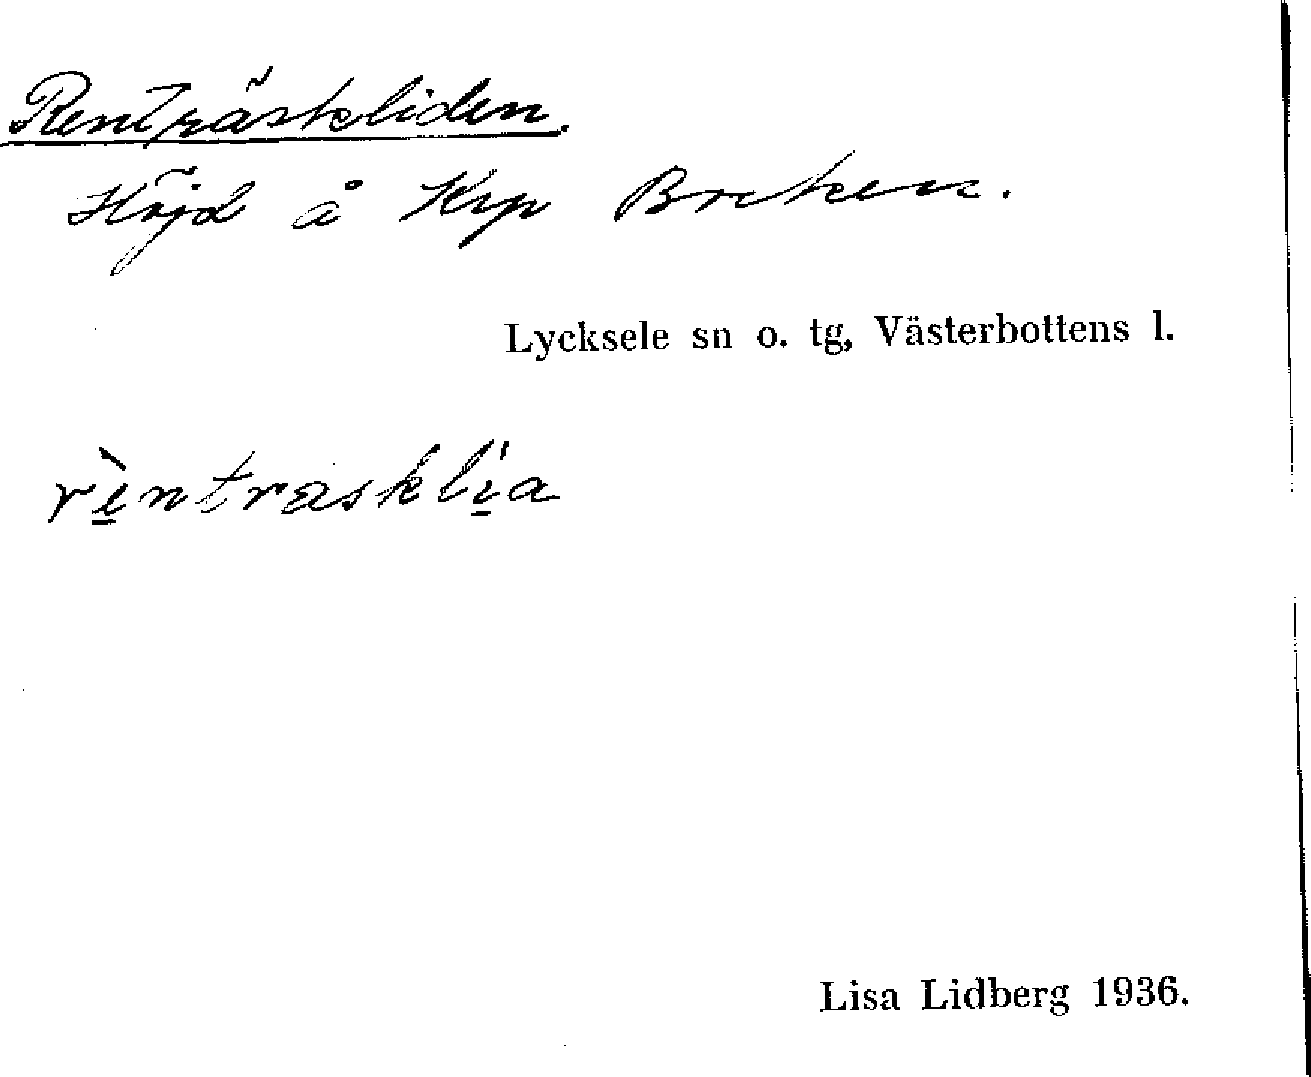 Renträskliden.
Höjd å Krp Breken.
Lycksele sn o. tg, Västerbottens l.
rèntrasklía
Lisa Lidberg 1936.